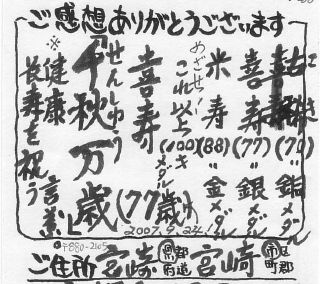 ご感想ありがとうございます
古稀(70)〃銅メダル
喜寿(77)〃銀メダル
米寿(88)〃金メダル
めざせ!これ以上(100才メダル
喜寿(77歳)
せんしゅう
千秋万歳
※健康長寿を祝う言葉
2007.9.24.
〒880-2105
ご住所 宮崎 都道府県 宮崎 市区町郡